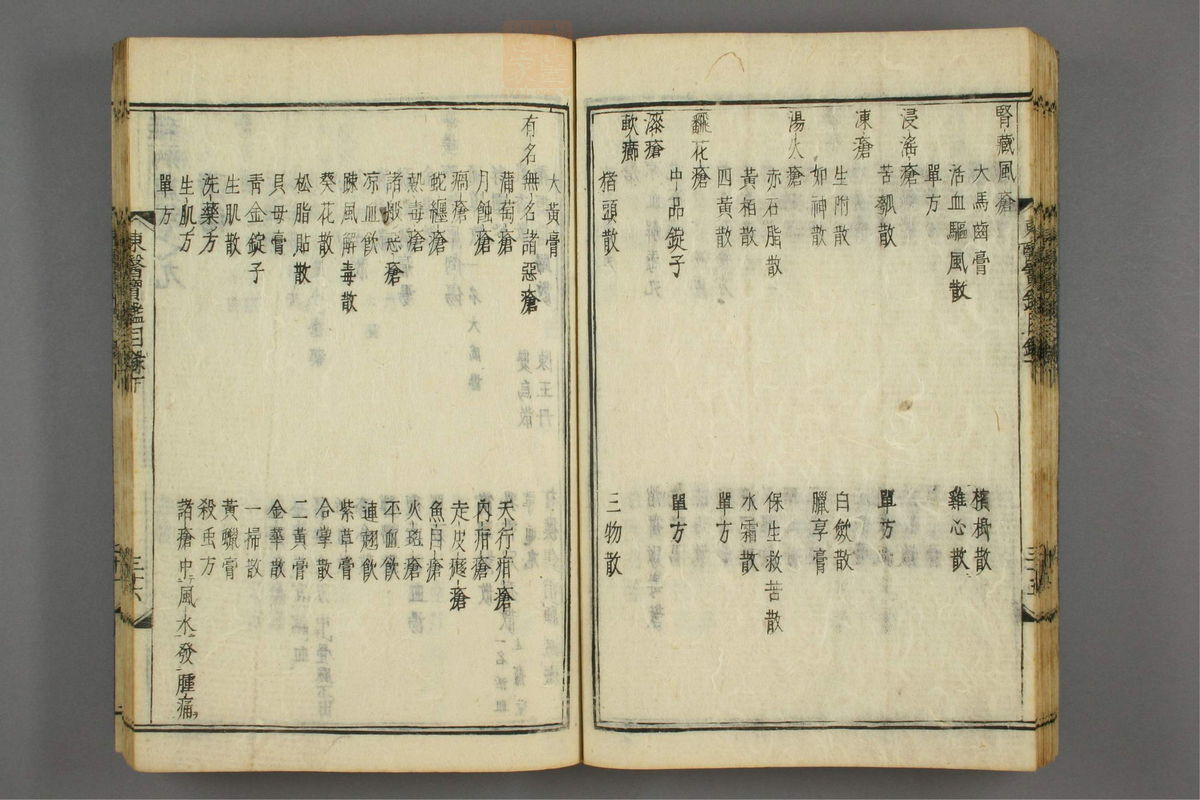 腎藏風瘡
大馬齒膏 檳榔散
活血驅風散 雞心散
單方
浸淫瘡
苦瓠散 單方
凍瘡
生附散 白斂散
如神散 臘享膏
湯火瘡
赤石脂散 保生救苦散
黃栢散 水霜散
四黃散 單方
飜花瘡
中品錠子 單方
漆瘡
軟癤
猪頭散 三物散
大黃膏
有名無名諸惡瘡
蒲萄瘡 天行疳瘡
月蝕瘡 內疳瘡
瘑瘡 走皮癊瘡
蛇纏瘡 魚目瘡
熱毒瘡 火瘢瘡
諸般惡瘡 平血飮
凉血飮 連翹飮
踈風解毒散 紫草膏
葵花散 合掌散
松脂貼散 二黃膏
貝母膏 金華散
青金錠子 一掃散
生肌散 黃蠟膏
洗藥方 殺虫方
生肌方 諸瘡中風水發腫痛
單方
東醫寶鑑目錄下 三十六